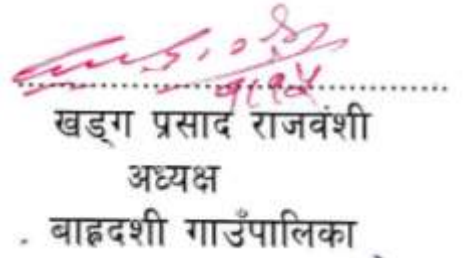 खड्ग प्रसाद राजवंशी
अध्यक्ष
बाह्रदशी गाउँपालिका